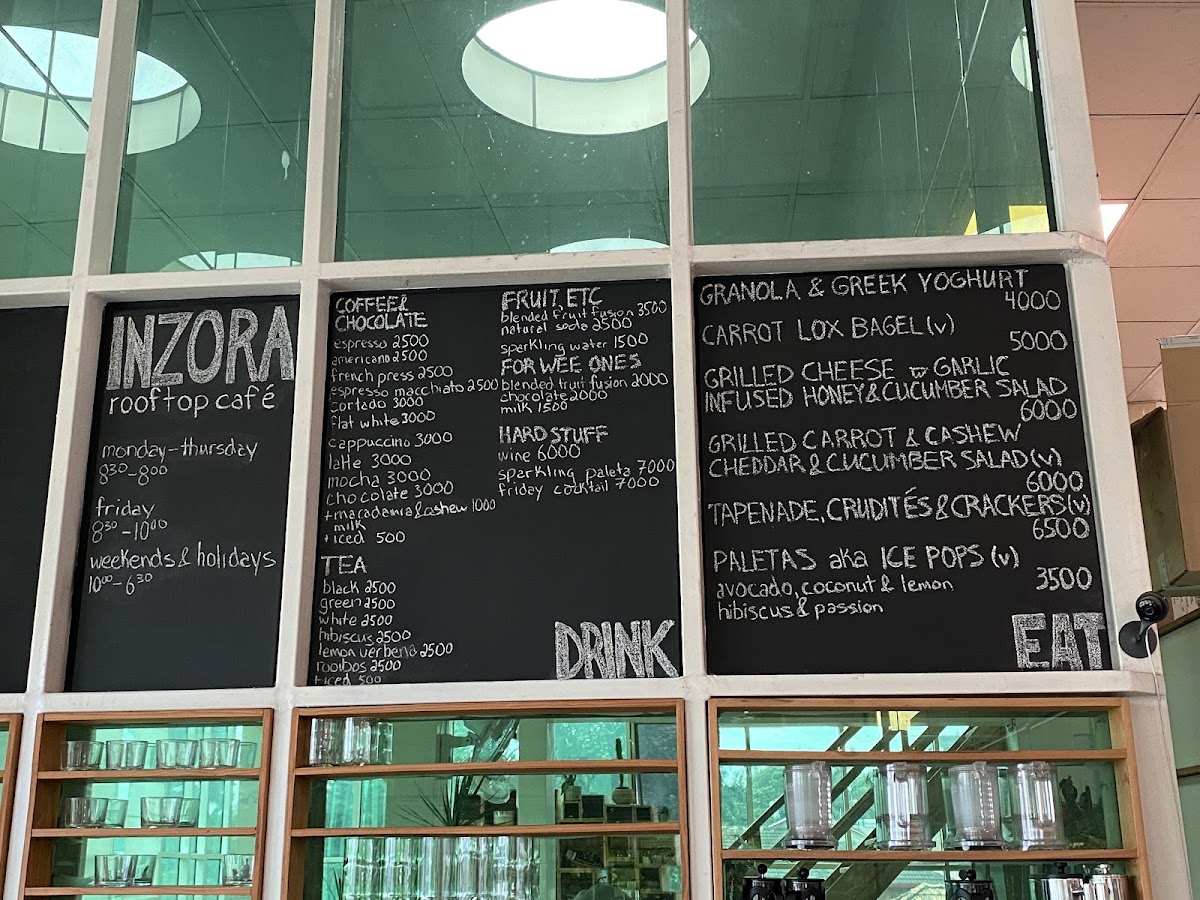 INZORA
rooftop café
monday-thursday
8³⁰-8⁰⁰
friday
8³⁰-10⁰⁰
weekends & holidays
10⁰⁰-6³⁰
COFFEE &
CHOCOLATE
espresso 2500
americano 2500
french press 2500
espresso macchiato 2500
cortado 3000
flat white 3000
cappuccino 3000
latte 3000
mocha 3000
chocolate 3000
+macadamia & cashew 1000
milk
+ iced 500
TEA
black 2500
green 2500
white 2500
hibiscus 2500
lemon verbena 2500
rooibos 2500
+iced 500
FRUIT, ETC
blended fruit fusion 3500
natural soda 2500
sparkling water 1500
FOR WEE ONES
blended fruit fusion 2000
chocolate 2000
milk 1500
HARD STUFF
wine 6000
sparkling paleta 7000
friday cocktail 7000
DRINK
GRANOLA & GREEK YOGHURT
4000
CARROT LOX BAGEL (v)
5000
GRILLED CHEESE w GARLIC
INFUSED HONEY & CUCUMBER SALAD
6000
GRILLED CARROT & CASHEW
CHEDDAR & CUCUMBER SALAD (v)
6000
TAPENADE, CRUDITÉS & CRACKERS (v)
6500
PALETAS aka ICE POPS (v)
avocado, coconut & lemon 3500
hibiscus & passion
EAT